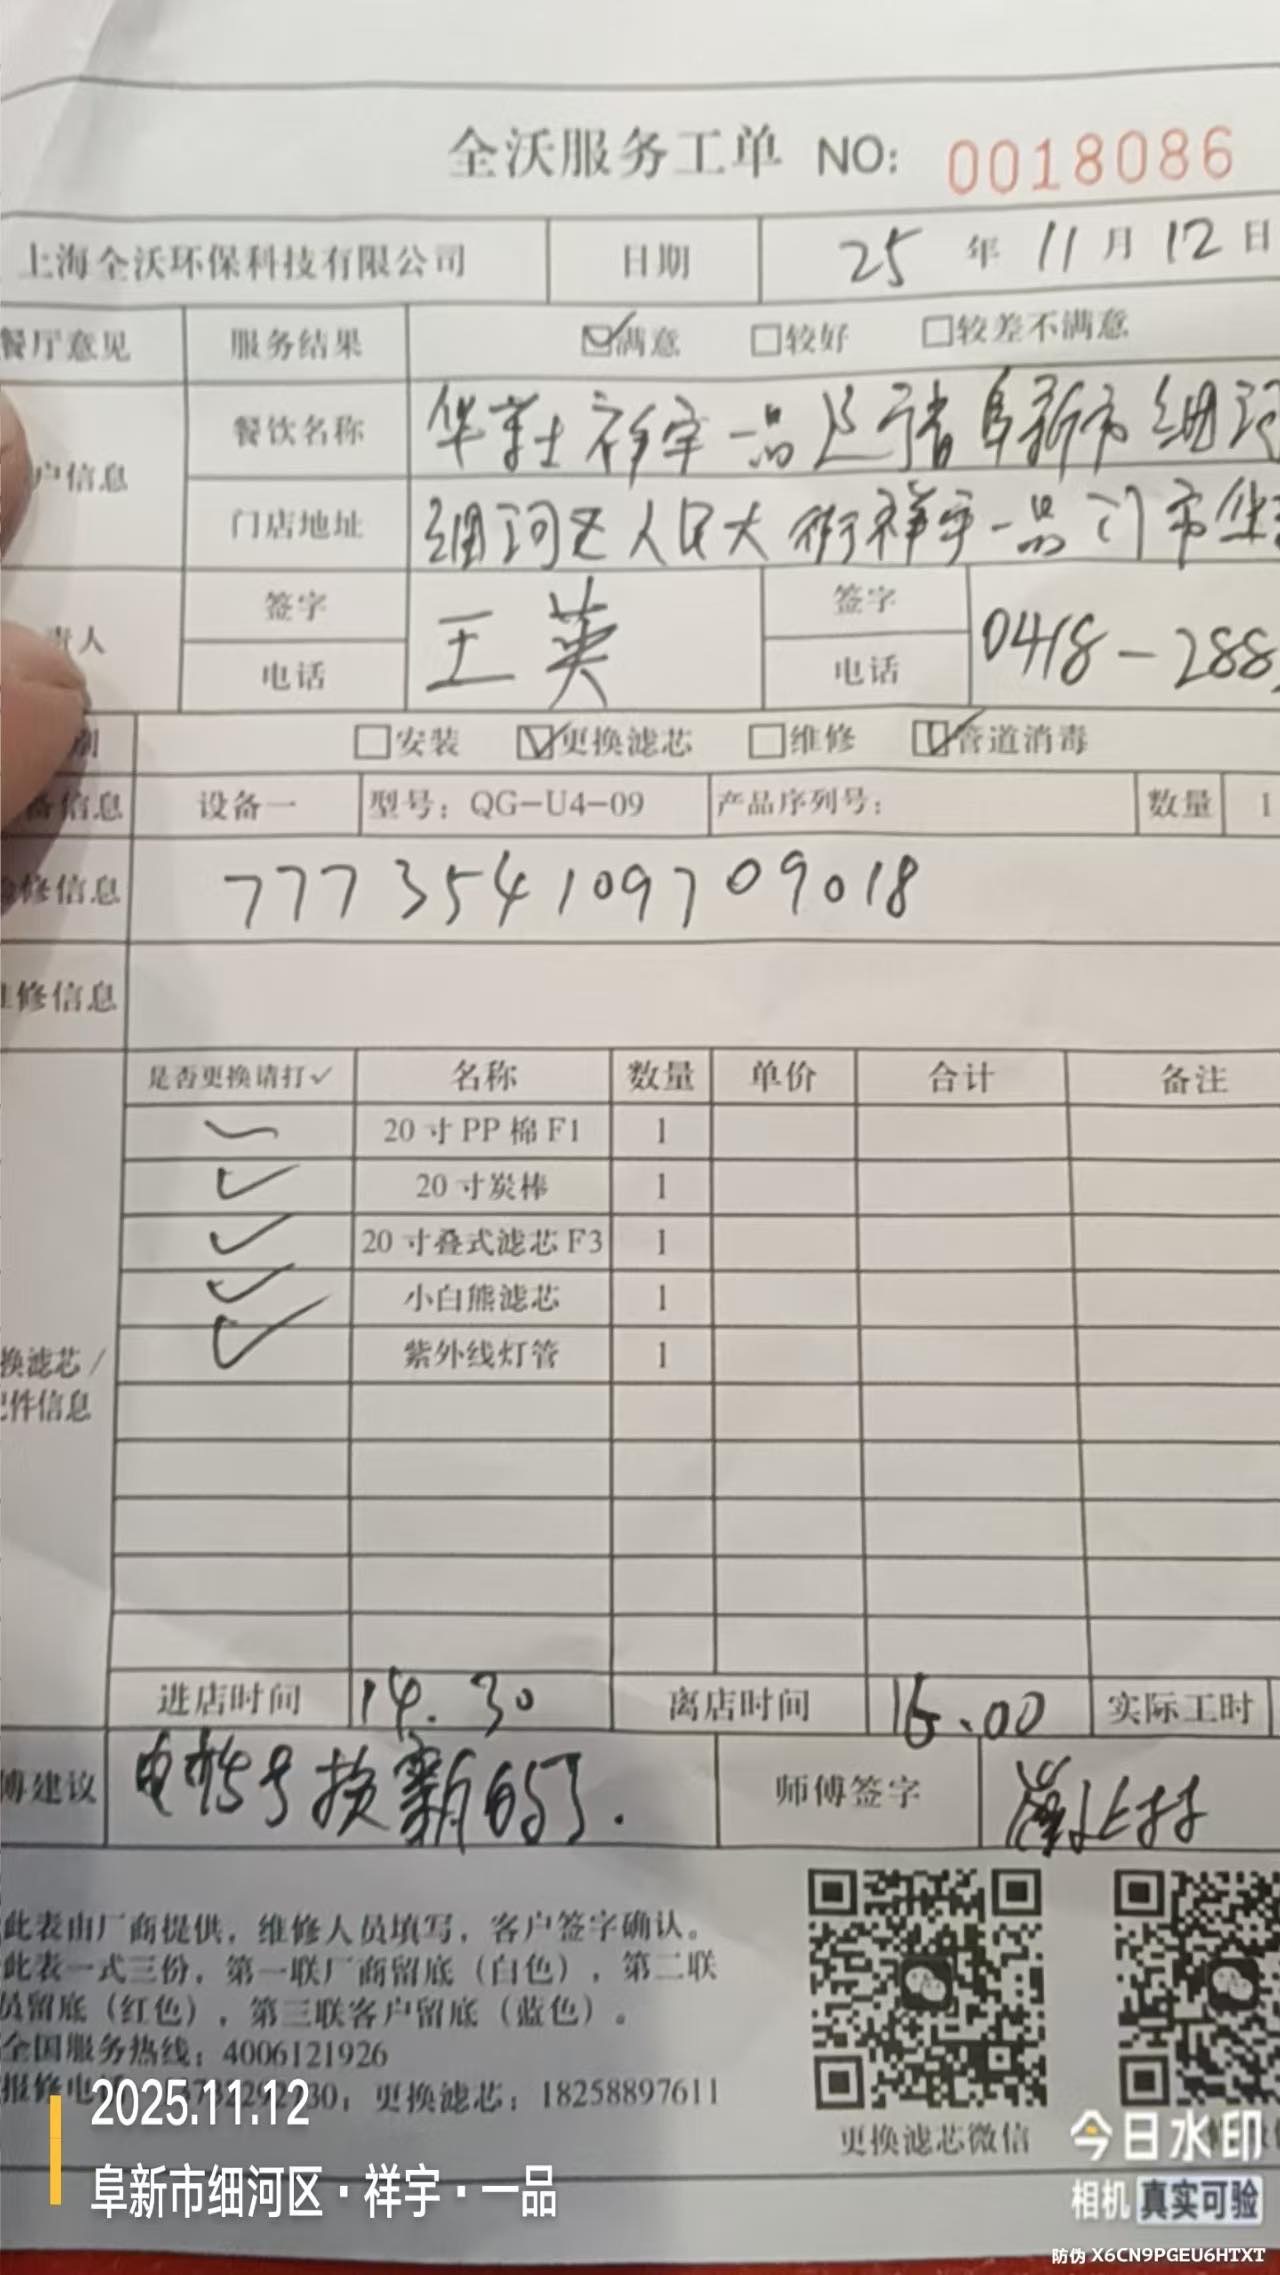 全沃服务工单 NO: 0018086
上海全沃环保科技有限公司 日期 25 年 11 月 12 日
餐厅意见 服务结果 ☑满意 □较好 □较差不满意
户信息 餐饮名称 华莱士祥宇一品辽宁省阜新市细河
门店地址 细河区人民大街祥宇一品门市华
责人 签字 王英 签字
电话 电话 0418-288
别 □安装 ☑更换滤芯 □维修 ☑管道消毒
备信息 设备一 型号: QG-U4-09 产品序列号: 数量 1
修信息 777354109709018
修信息
是否更换请打✓ 名称 数量 单价 合计 备注
✓ 20寸PP棉F1 1
✓ 20寸炭棒 1
✓ 20寸叠式滤芯F3 1
✓ 小白熊滤芯 1
✓ 紫外线灯管 1
换滤芯/
件信息
进店时间 14.30 离店时间 16.00 实际工时
傅建议 换新的了. 师傅签字
此表由厂商提供，维修人员填写，客户签字确认。
此表一式三份，第一联厂商留底（白色），第二联
员留底（红色），第三联客户留底（蓝色）。
全国服务热线: 4006121926
报修电 更换滤芯: 18258897611
更换滤芯微信
2025.11.12
阜新市细河区·祥宇·一品
今日水印
相机 真实可验
防伪 X6CN9PGEU6HTXT